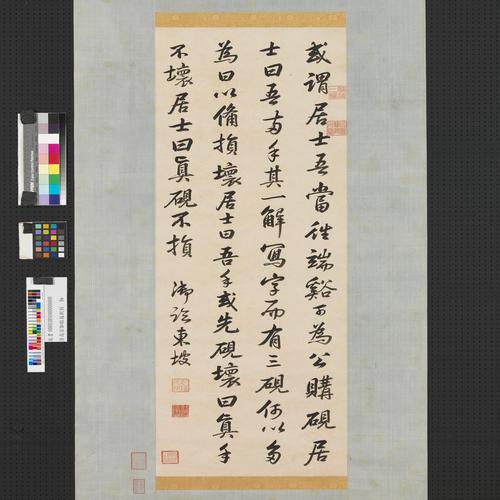 或謂居士吾當往端谿可為公購硯居
士曰吾兩手其一解寫字而有三硯何以多
為曰以備損壞居士曰吾手或先硯壞曰真手
不壞居士曰真硯不損 御臨東坡